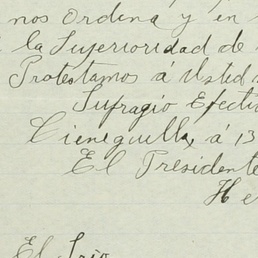 nos ordena y en
la Superioridad de
Protestamos á Usted
Sufragio Efecti
Cieneguilla, á 13
El Presidente
He
El Srio